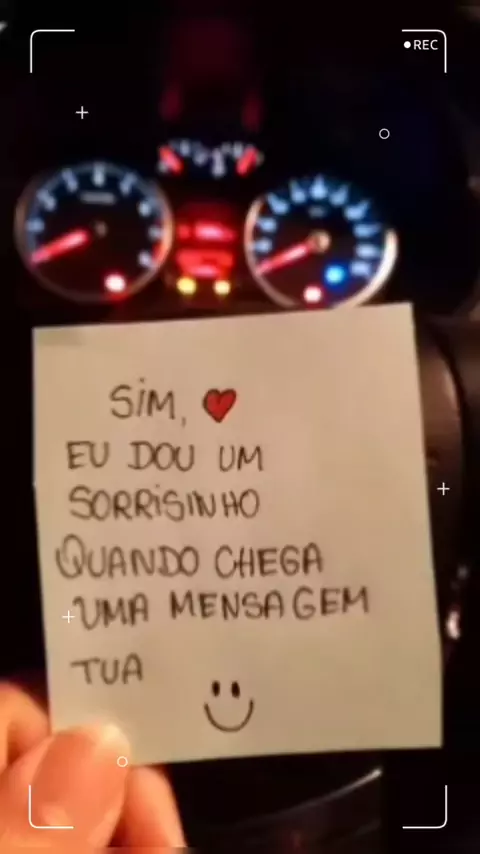 REC
SIM,
EU DOU UM
SORRISINHO
QUANDO CHEGA
UMA MENSAGEM
TUA